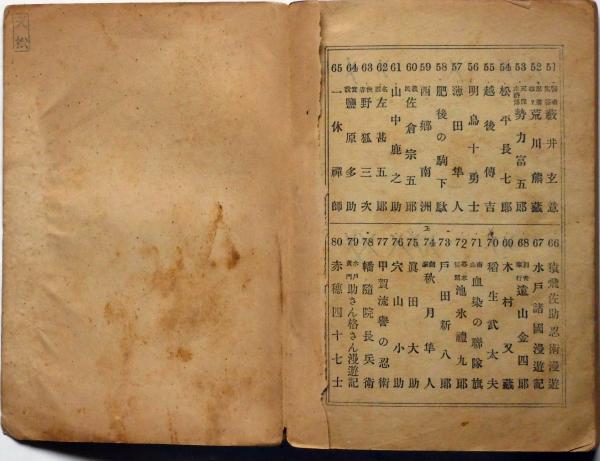 51 藪井玄意
52 荒川熊藏
53 勢力富五郎
54 松平長七郎
55 越後傳吉
56 明烏十勇士
57 池田隼人
58 肥後の駒下駄
59 西郷南洲
60 義民佐倉宗五郎
61 山中鹿之助
62 左甚五郎
63 野狐三次
64 鹽原多助
65 一休禪師
66 猿飛佐助忍術漫遊
67 水戸諸國漫遊記
68 遠山金四郎
69 木村又藏
70 稲生武太夫
71 血染の聯隊旗
72 池永禮九郎
73 戸田新八郎
74 秋月隼人
75 眞田大助
76 穴山小助
77 甲賀流譽の忍術
78 幡隨院長兵衛
79 水戸黄門助さん格さん漫遊記
80 赤穂四十七士